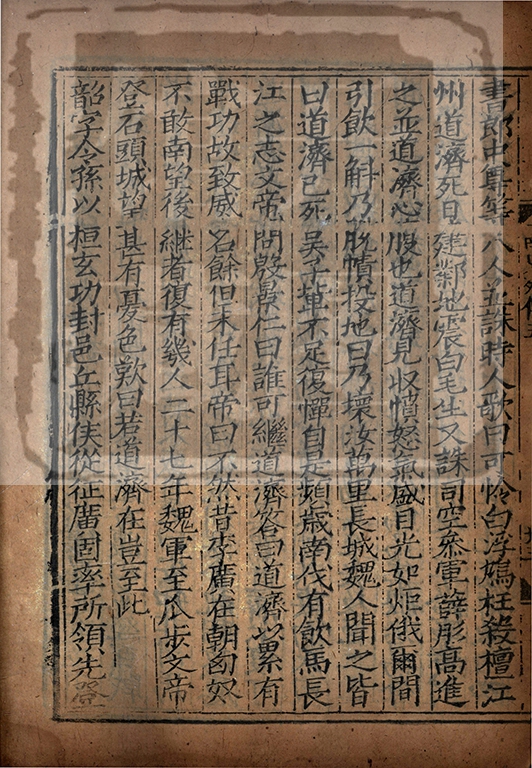 書郎中尊等八人並誅時人歌曰可怜白浮鳩枉殺檀江
州道濟死日建鄴地震白毛生又誅司空叅軍薛彤髙進
之並道濟心腹也道濟見收憤怒氣盛目光如炬俄爾間
引飲一斛乃脫幘投地曰乃壞汝萬里長城魏人聞之皆
曰道濟已死吳子軰不足復憚自是頻歲南伐有飲馬長
江之志文帝問殷景仁曰誰可繼道濟答曰道濟以累有
戰功故致威名餘但未任耳帝曰不然昔李廣在朝匈奴
不敢南望後継者復有幾人二十七年魏軍至瓜步文帝
登石頭城望甚有憂色歎曰若道濟在豈至此
韶字令孫以桓玄功封邑丘縣侯從征廣固率所領先登